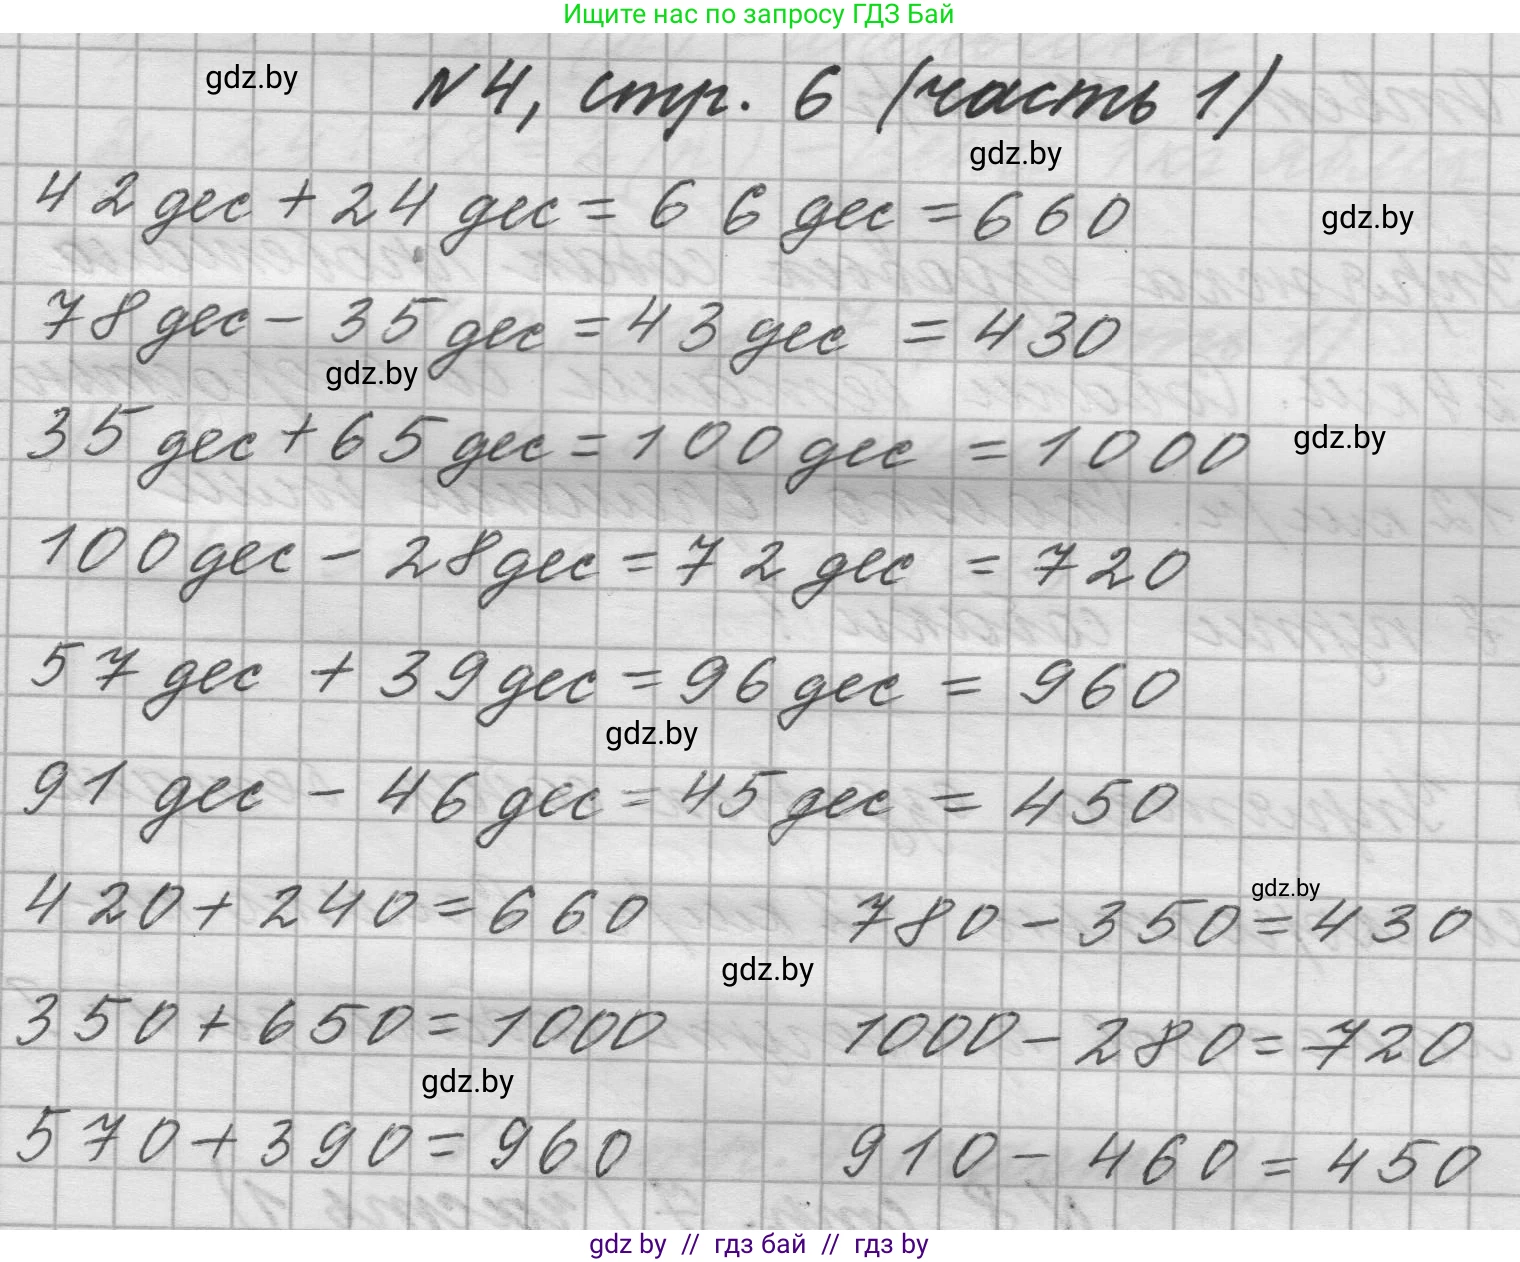 Ищите нас по запросу ГДЗ Бай
gdz.by
N4, стр. 6 (часть 1)
gdz.by
42 дес + 24 дес = 66 дес = 660
gdz.by
78 дес - 35 дес = 43 дес = 430
gdz.by
35 дес + 65 дес = 100 дес = 1000
gdz.by
100 дес - 28 дес = 72 дес = 720
57 дес + 39 дес = 96 дес = 960
gdz.by
91 дес - 46 дес = 45 дес = 450
gdz.by
420 + 240 = 660 780 - 350 = 430
gdz.by
350 + 650 = 1000 1000 - 280 = 720
gdz.by
570 + 390 = 960 910 - 460 = 450
gdz by // гдз бай // гдз by